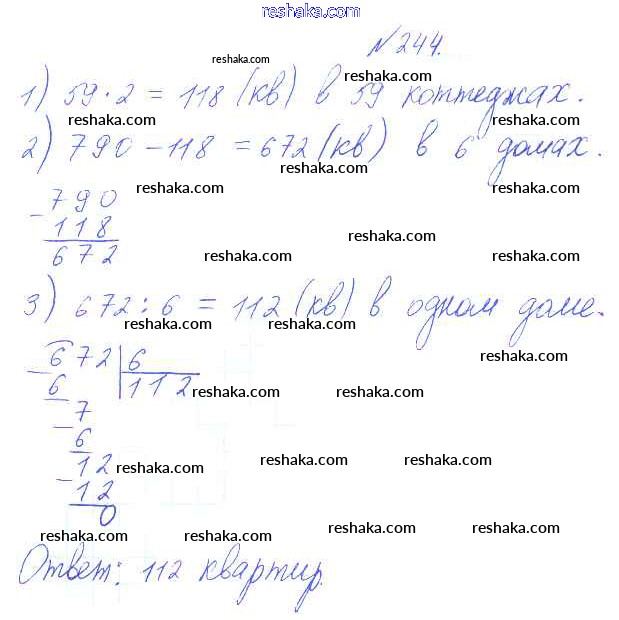 reshaka.com
№ 244.
reshaka.com
reshaka.com
1) 59 · 2 = 118 (кв) в 59 коттеджах.
reshaka.com reshaka.com
2) 790 - 118 = 672 (кв) в 6 домах.
reshaka.com reshaka.com reshaka.com
- 790
118
672
reshaka.com
reshaka.com reshaka.com
3) 672 : 6 = 112 (кв) в одном доме.
reshaka.com reshaka.com reshaka.com
- 672 | 6
6 112
reshaka.com reshaka.com
- 7
6
- 12
reshaka.com reshaka.com reshaka.com
12
0
reshaka.com reshaka.com reshaka.com
Ответ: 112 квартир.
reshaka.com reshaka.com